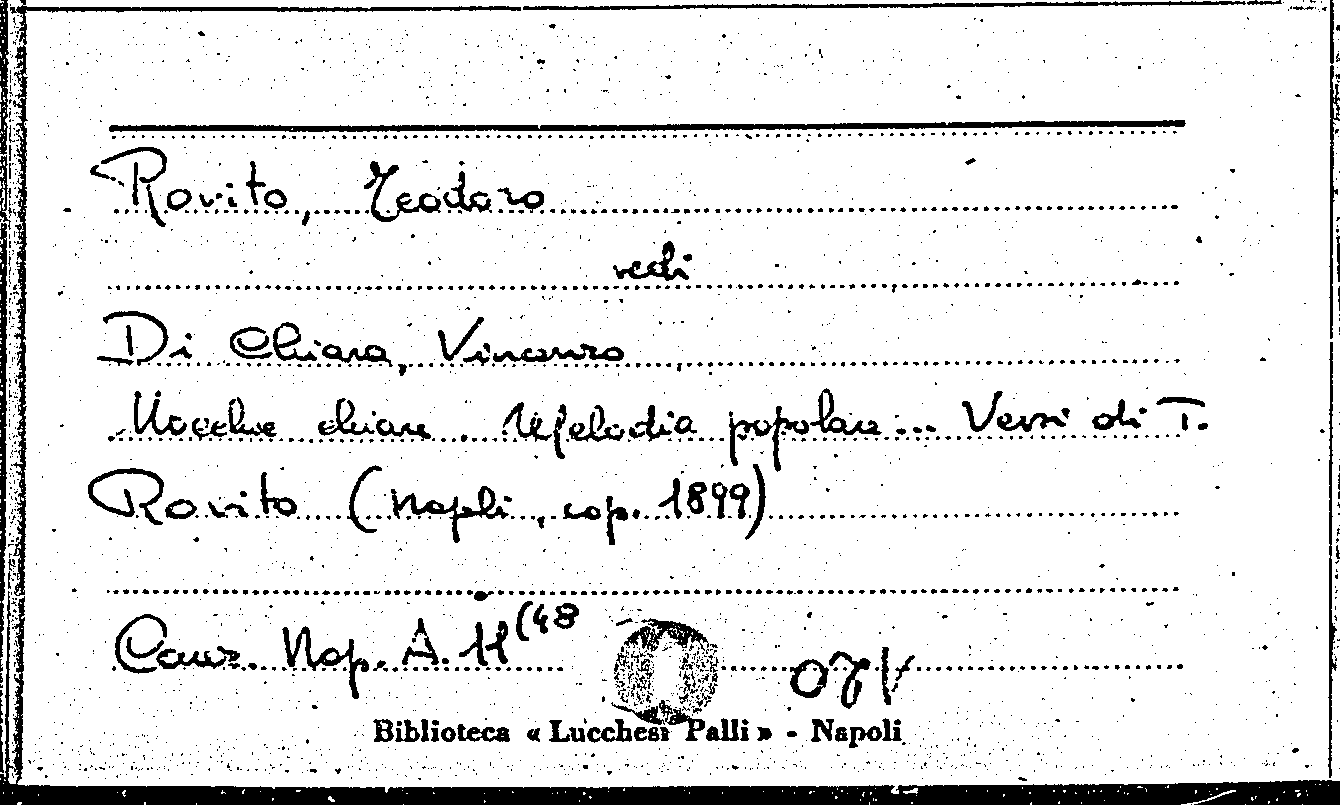 Rovito, Teodoro
vedi
Di Chiara, Vincenzo
Uocchie chiare. Melodia popolare... Versi di T.
Rovito (Napoli, cop. 1899)
Canz. Nap. A. 11 (48
Biblioteca « Lucchesi Palli » - Napoli